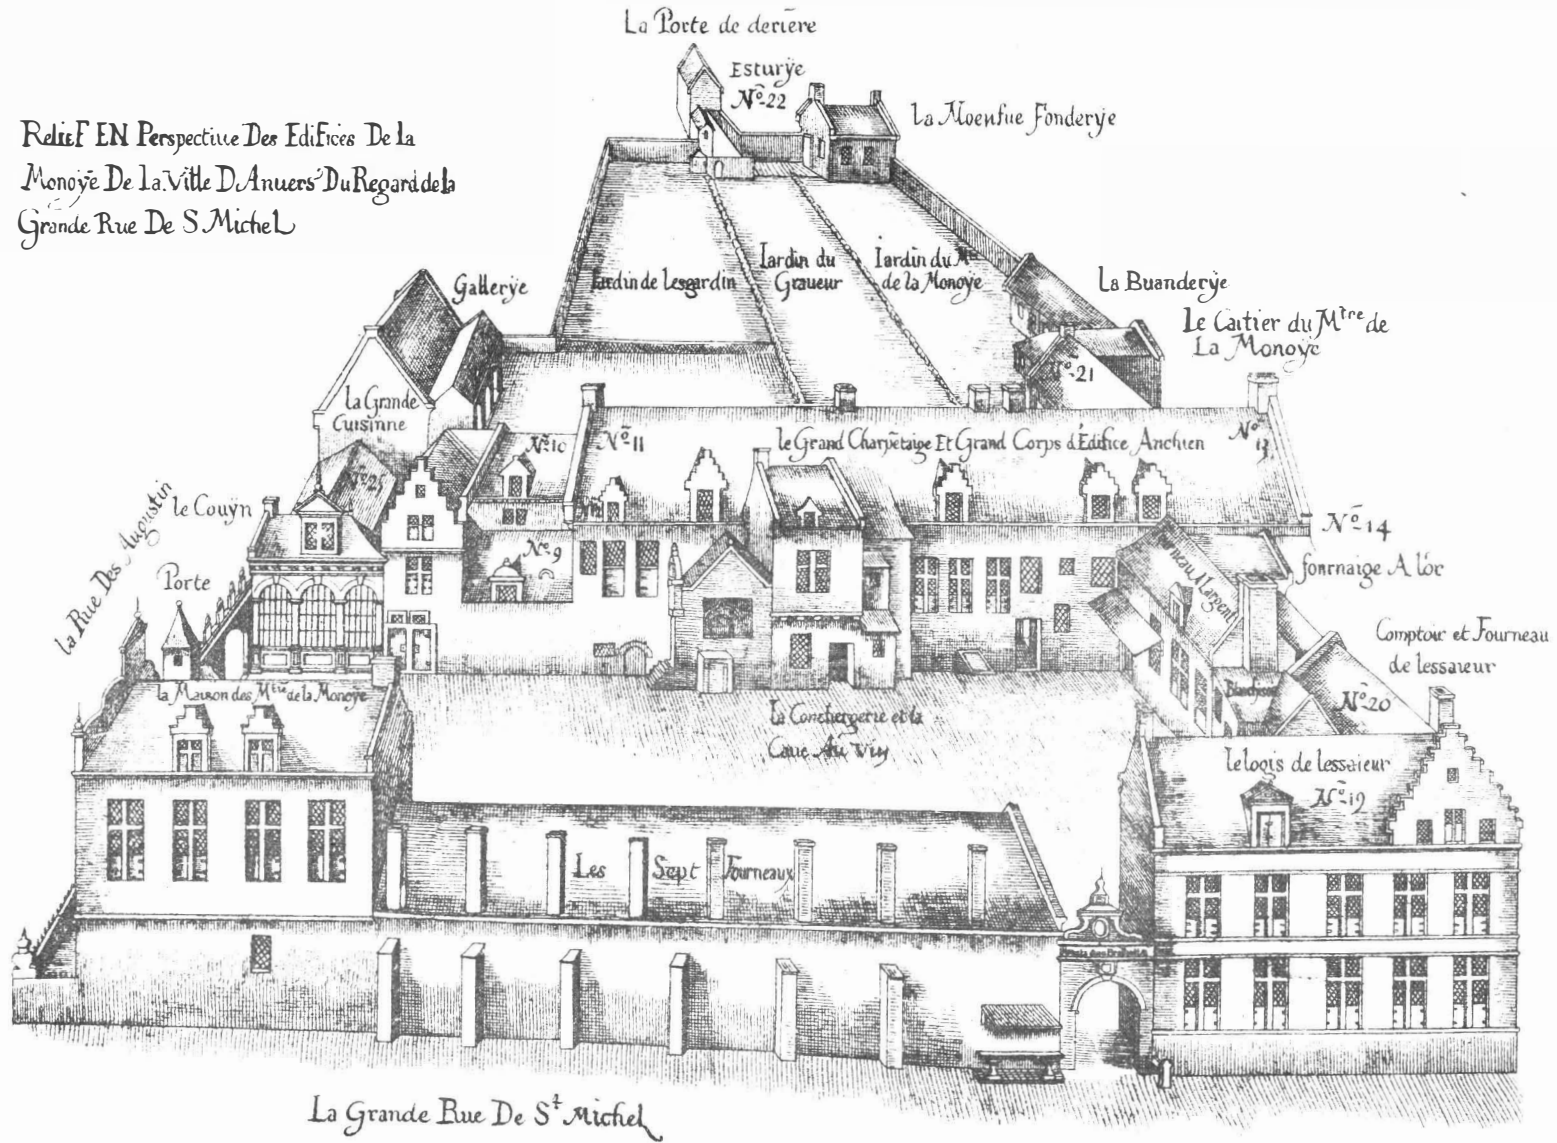 La Porte de deriere
Esturÿe
Nº 22
La Moenfue Fonderÿe
Relief EN Perspectiue Des Edifices De La
Monoÿe De La Ville D Anuers Du Regard de la
Grande Rue De S Michel
Gallerÿe
Iardin de Lesgardin
Iardin du
Graueur
Iardin du Mre
de la Monoÿe
La Buanderÿe
Le Cartier du Mtre de
La Monoÿe
Nº 21
la Grande
Cuisinne
Nº 10
Nº 11
le Grand Charpetaige Et Grand Corps d'Edifice Anchien
Nº 13
Nº 25
le Couÿn
la Rue Des Augustin
Porte
Nº 9
Nº 14
fournaige A l'or
Fourneau A Largent
Comptoir et Fourneau
de lessaieur
Nº 20
la Maison des Mtre de la Monoÿe
La Conchergerie et la
Caue Au Vin
le logis de lessaieur
Nº 19
Les Sept Fourneaux
La Grande Rue De St Michel